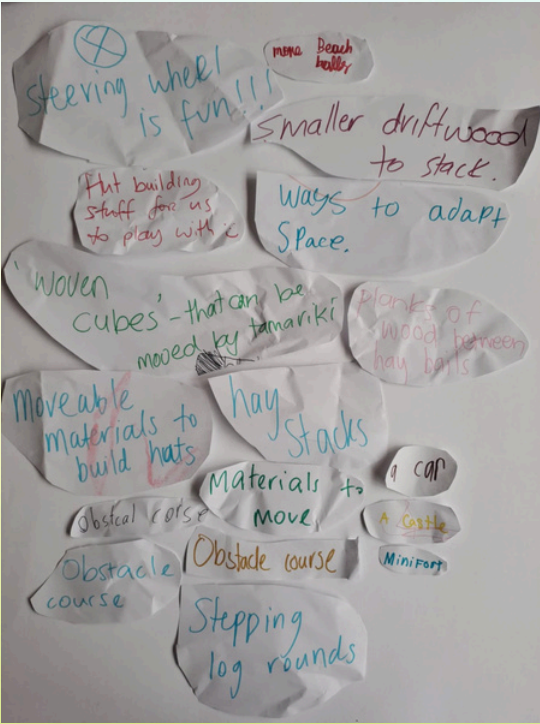 steering wheel
is fun!!!
more Beach
balls
smaller driftwood
to stack.
Hut building
stuff for us
to play with
ways to adapt
Space.
'woven
cubes' - that can be
moved by tamariki
planks of
wood between
hay bails
moveable
materials to
build huts
hay
stacks
a car
Materials to
move
Obstcal corse
A Castle
Obstacle
course
Obstacle course
Minifort
Stepping
log rounds